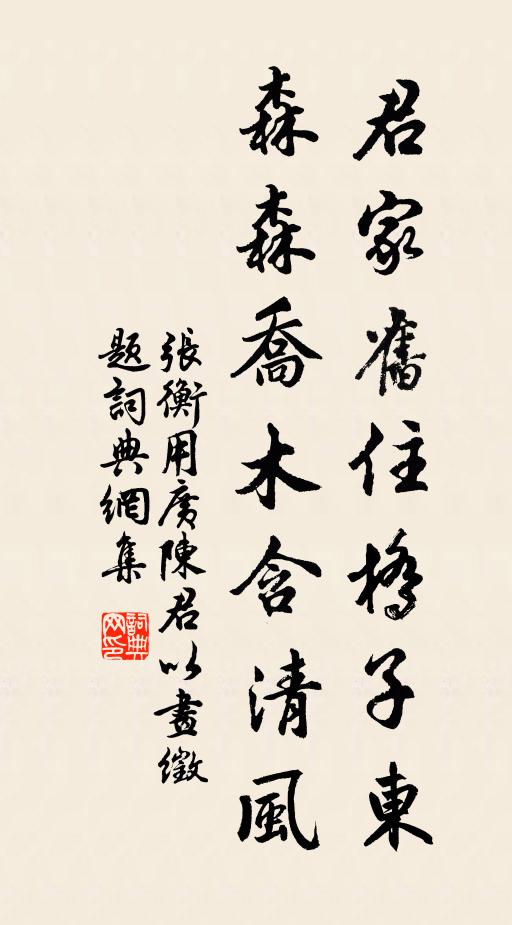 君家舊住橋子東
森森喬木含清風
張衡用廣陳君以畫徵
題詞典網集
詞典網印